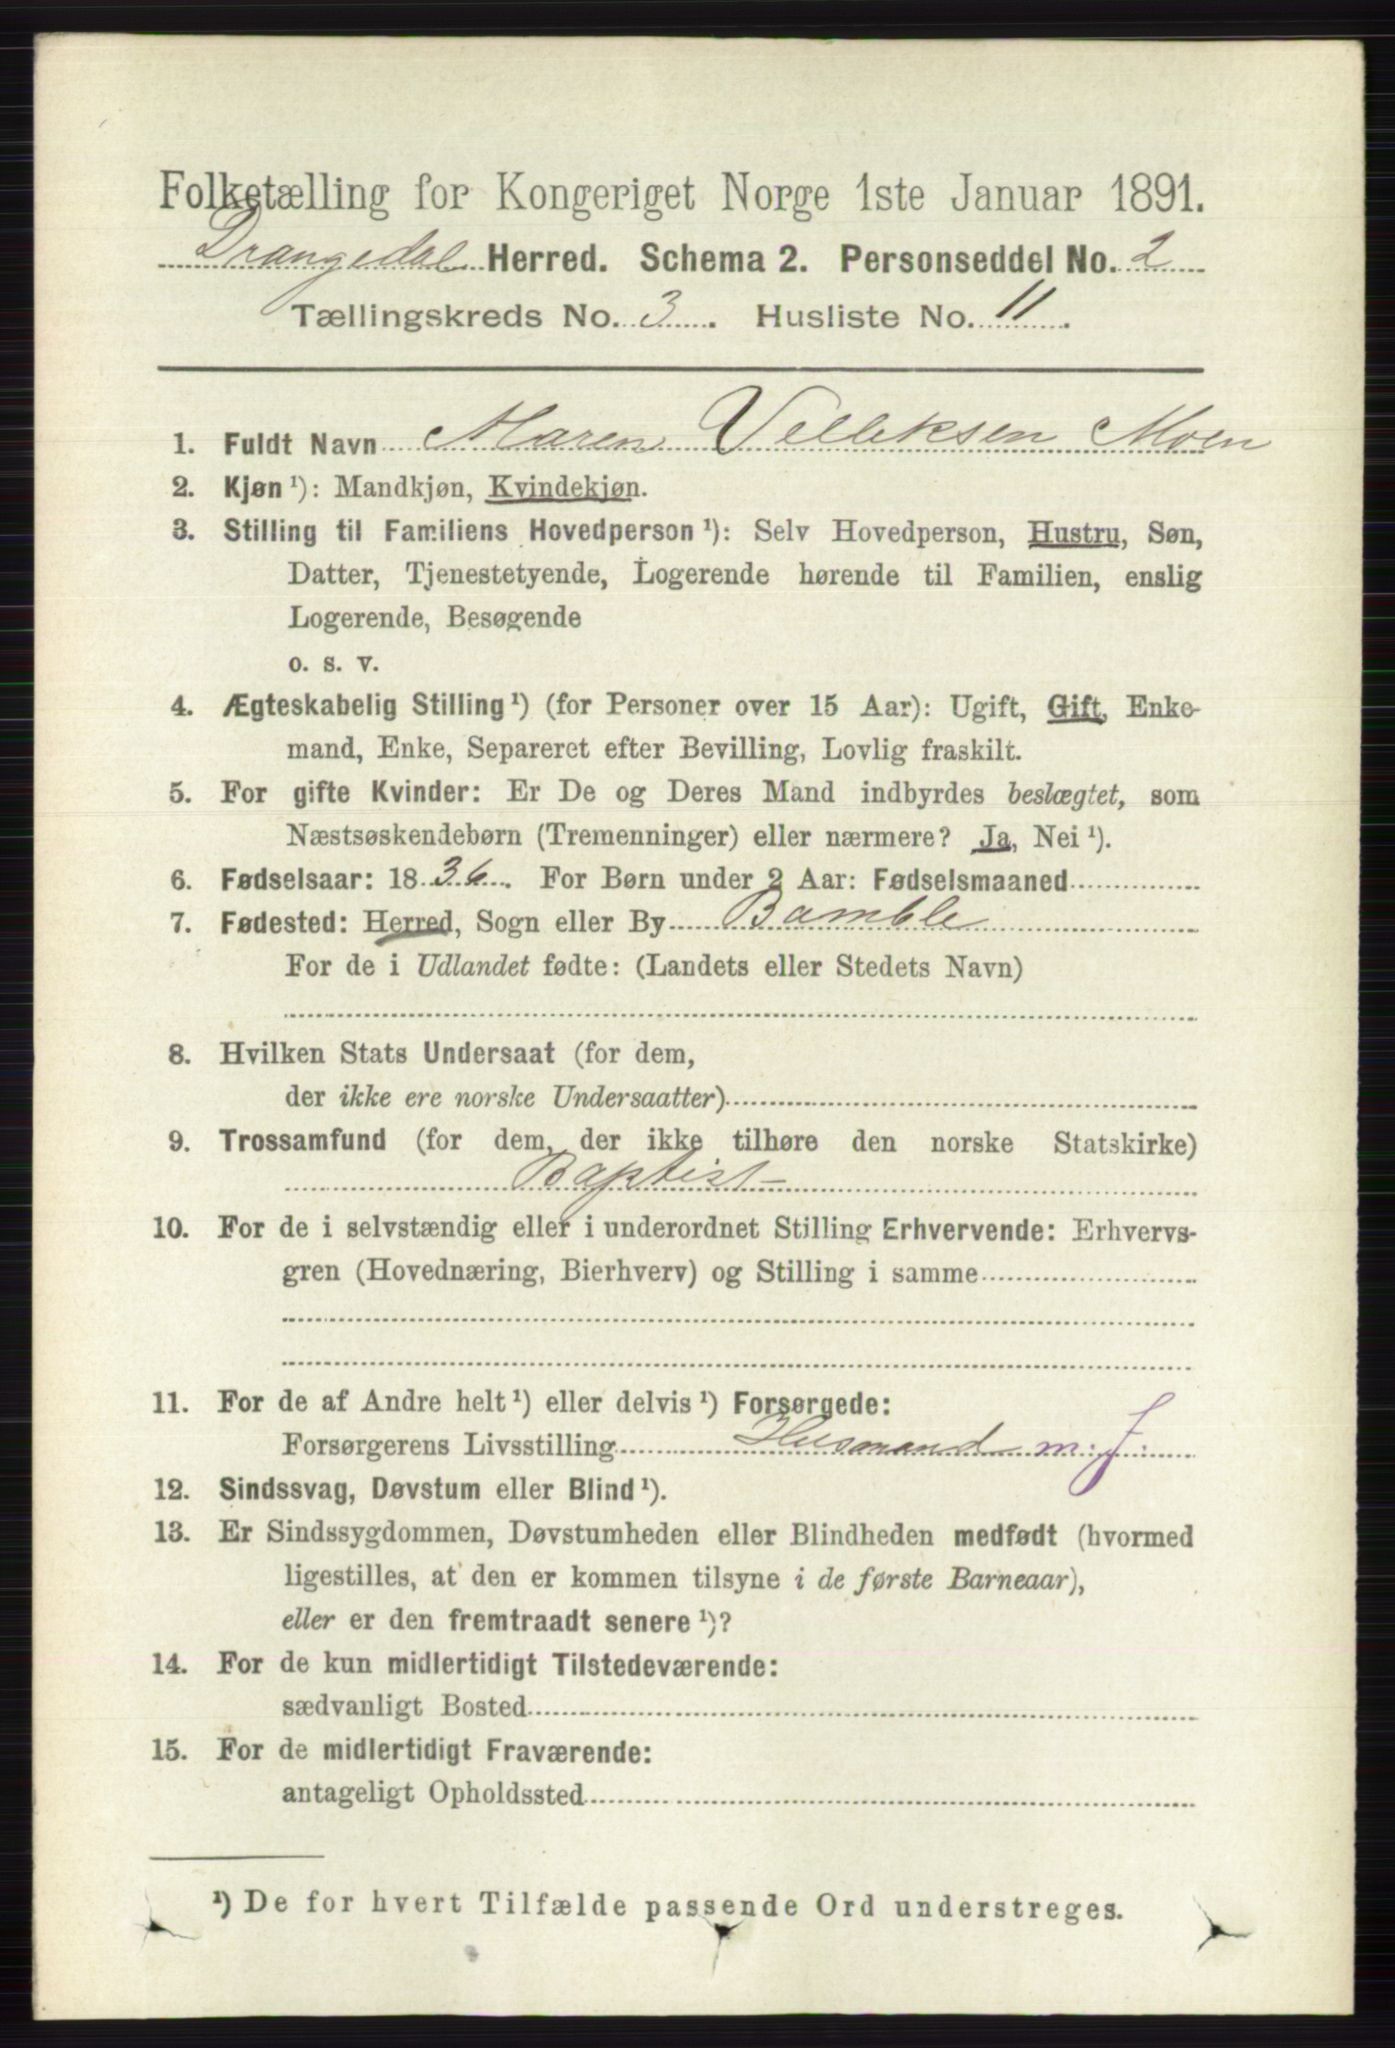 Folketælling for Kongeriget Norge 1ste Januar 1891.
Drangedal Herred. Schema 2. Personseddel No. 2
Tællingskreds No. 3. Husliste No. 11.
1. Fuldt Navn Maren Velleksen Moen
2. Kjøn ¹): Mandkjøn, Kvindekjøn.
3. Stilling til Familiens Hovedperson ¹): Selv Hovedperson, Hustru, Søn,
Datter, Tjenestetyende, Logerende hørende til Familien, enslig
Logerende, Besøgende
o. s. v.
4. Ægteskabelig Stilling ¹) (for Personer over 15 Aar): Ugift, Gift, Enke-
mand, Enke, Separeret efter Bevilling, Lovlig fraskilt.
5. For gifte Kvinder: Er De og Deres Mand indbyrdes beslægtet, som
Næstsøskendebørn (Tremenninger) eller nærmere? Ja, Nei ¹).
6. Fødselsaar: 1836. For Børn under 2 Aar: Fødselsmaaned
7. Fødested: Herred, Sogn eller By Bamble
For de i Udlandet fødte: (Landets eller Stedets Navn)
8. Hvilken Stats Undersaat (for dem,
der ikke ere norske Undersaatter)
9. Trossamfund (for dem, der ikke tilhøre den norske Statskirke)
Baptist
10. For de i selvstændig eller i underordnet Stilling Erhvervende: Erhvervs-
gren (Hovednæring, Bierhverv) og Stilling i samme
11. For de af Andre helt ¹) eller delvis ¹) Forsørgede:
Forsørgerens Livsstilling Husmand m: J:
12. Sindssvag, Døvstum eller Blind ¹).
13. Er Sindssygdommen, Døvstumheden eller Blindheden medfødt (hvormed
ligestilles, at den er kommen tilsyne i de første Barneaar),
eller er den fremtraadt senere ¹)?
14. For de kun midlertidigt Tilstedeværende:
sædvanligt Bosted
15. For de midlertidigt Fraværende:
antageligt Opholdssted
¹) De for hvert Tilfælde passende Ord understreges.